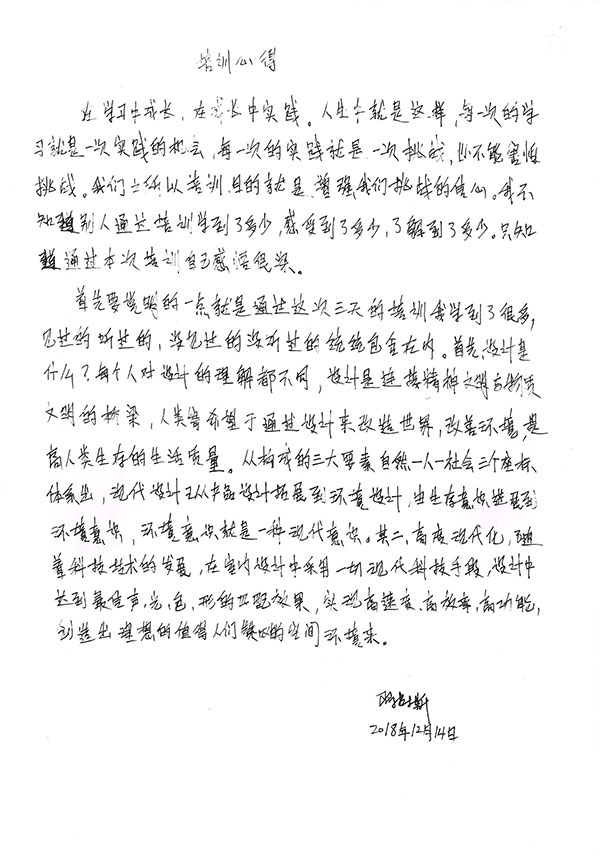 培训心得
在学习中成长，在成长中实践。人生本就是这样，每一次的学
习就是一次实践的机会，每一次的实践就是一次挑战，从不能害怕
挑战。我们之所以培训目的就是增强我们挑战的信心。我不
知道别人通过培训学到了多少，感受到了多少，了解到了多少。只知
道通过本次培训自己感悟很深。
首先要说明的一点就是通过这次三天的培训我学到了很多，
见过的听过的，没见过的没听过的统统包含在内。首先设计是
什么？每个人对设计的理解都不同，设计是连接精神文明与物质
文明的桥梁，人类寄希望于通过设计来改造世界，改善环境，提
高人类生存的生活质量。从构成的三大要素自然一人一社会三个座标
体系出，现代设计已从产品设计拓展到环境设计，由生存意识进展到
环境意识，环境意识就是一种现代意识。其二，高度现代化，随
着科技技术的发展，在室内设计中采用一切现代科技手段，设计中
达到最佳声、光、色、形的匹配效果，实现高速度、高效率、高功能，
创造出理想的值得人们赞叹的空间环境来。
2018年12月14日